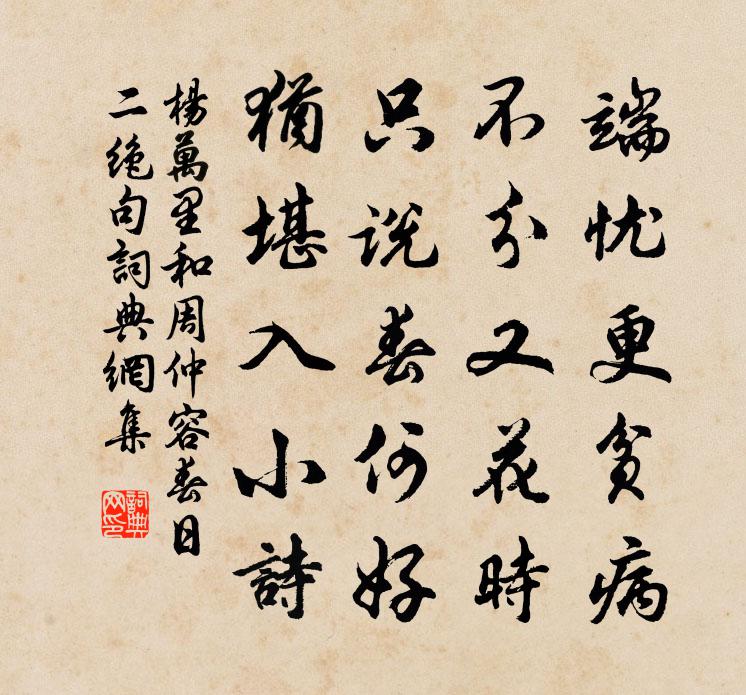 端忧更贫病
不分又花時
只説春何好
猶堪入小詩
楊萬里和周仲容春日
二絶句詞典網集
詞典網印